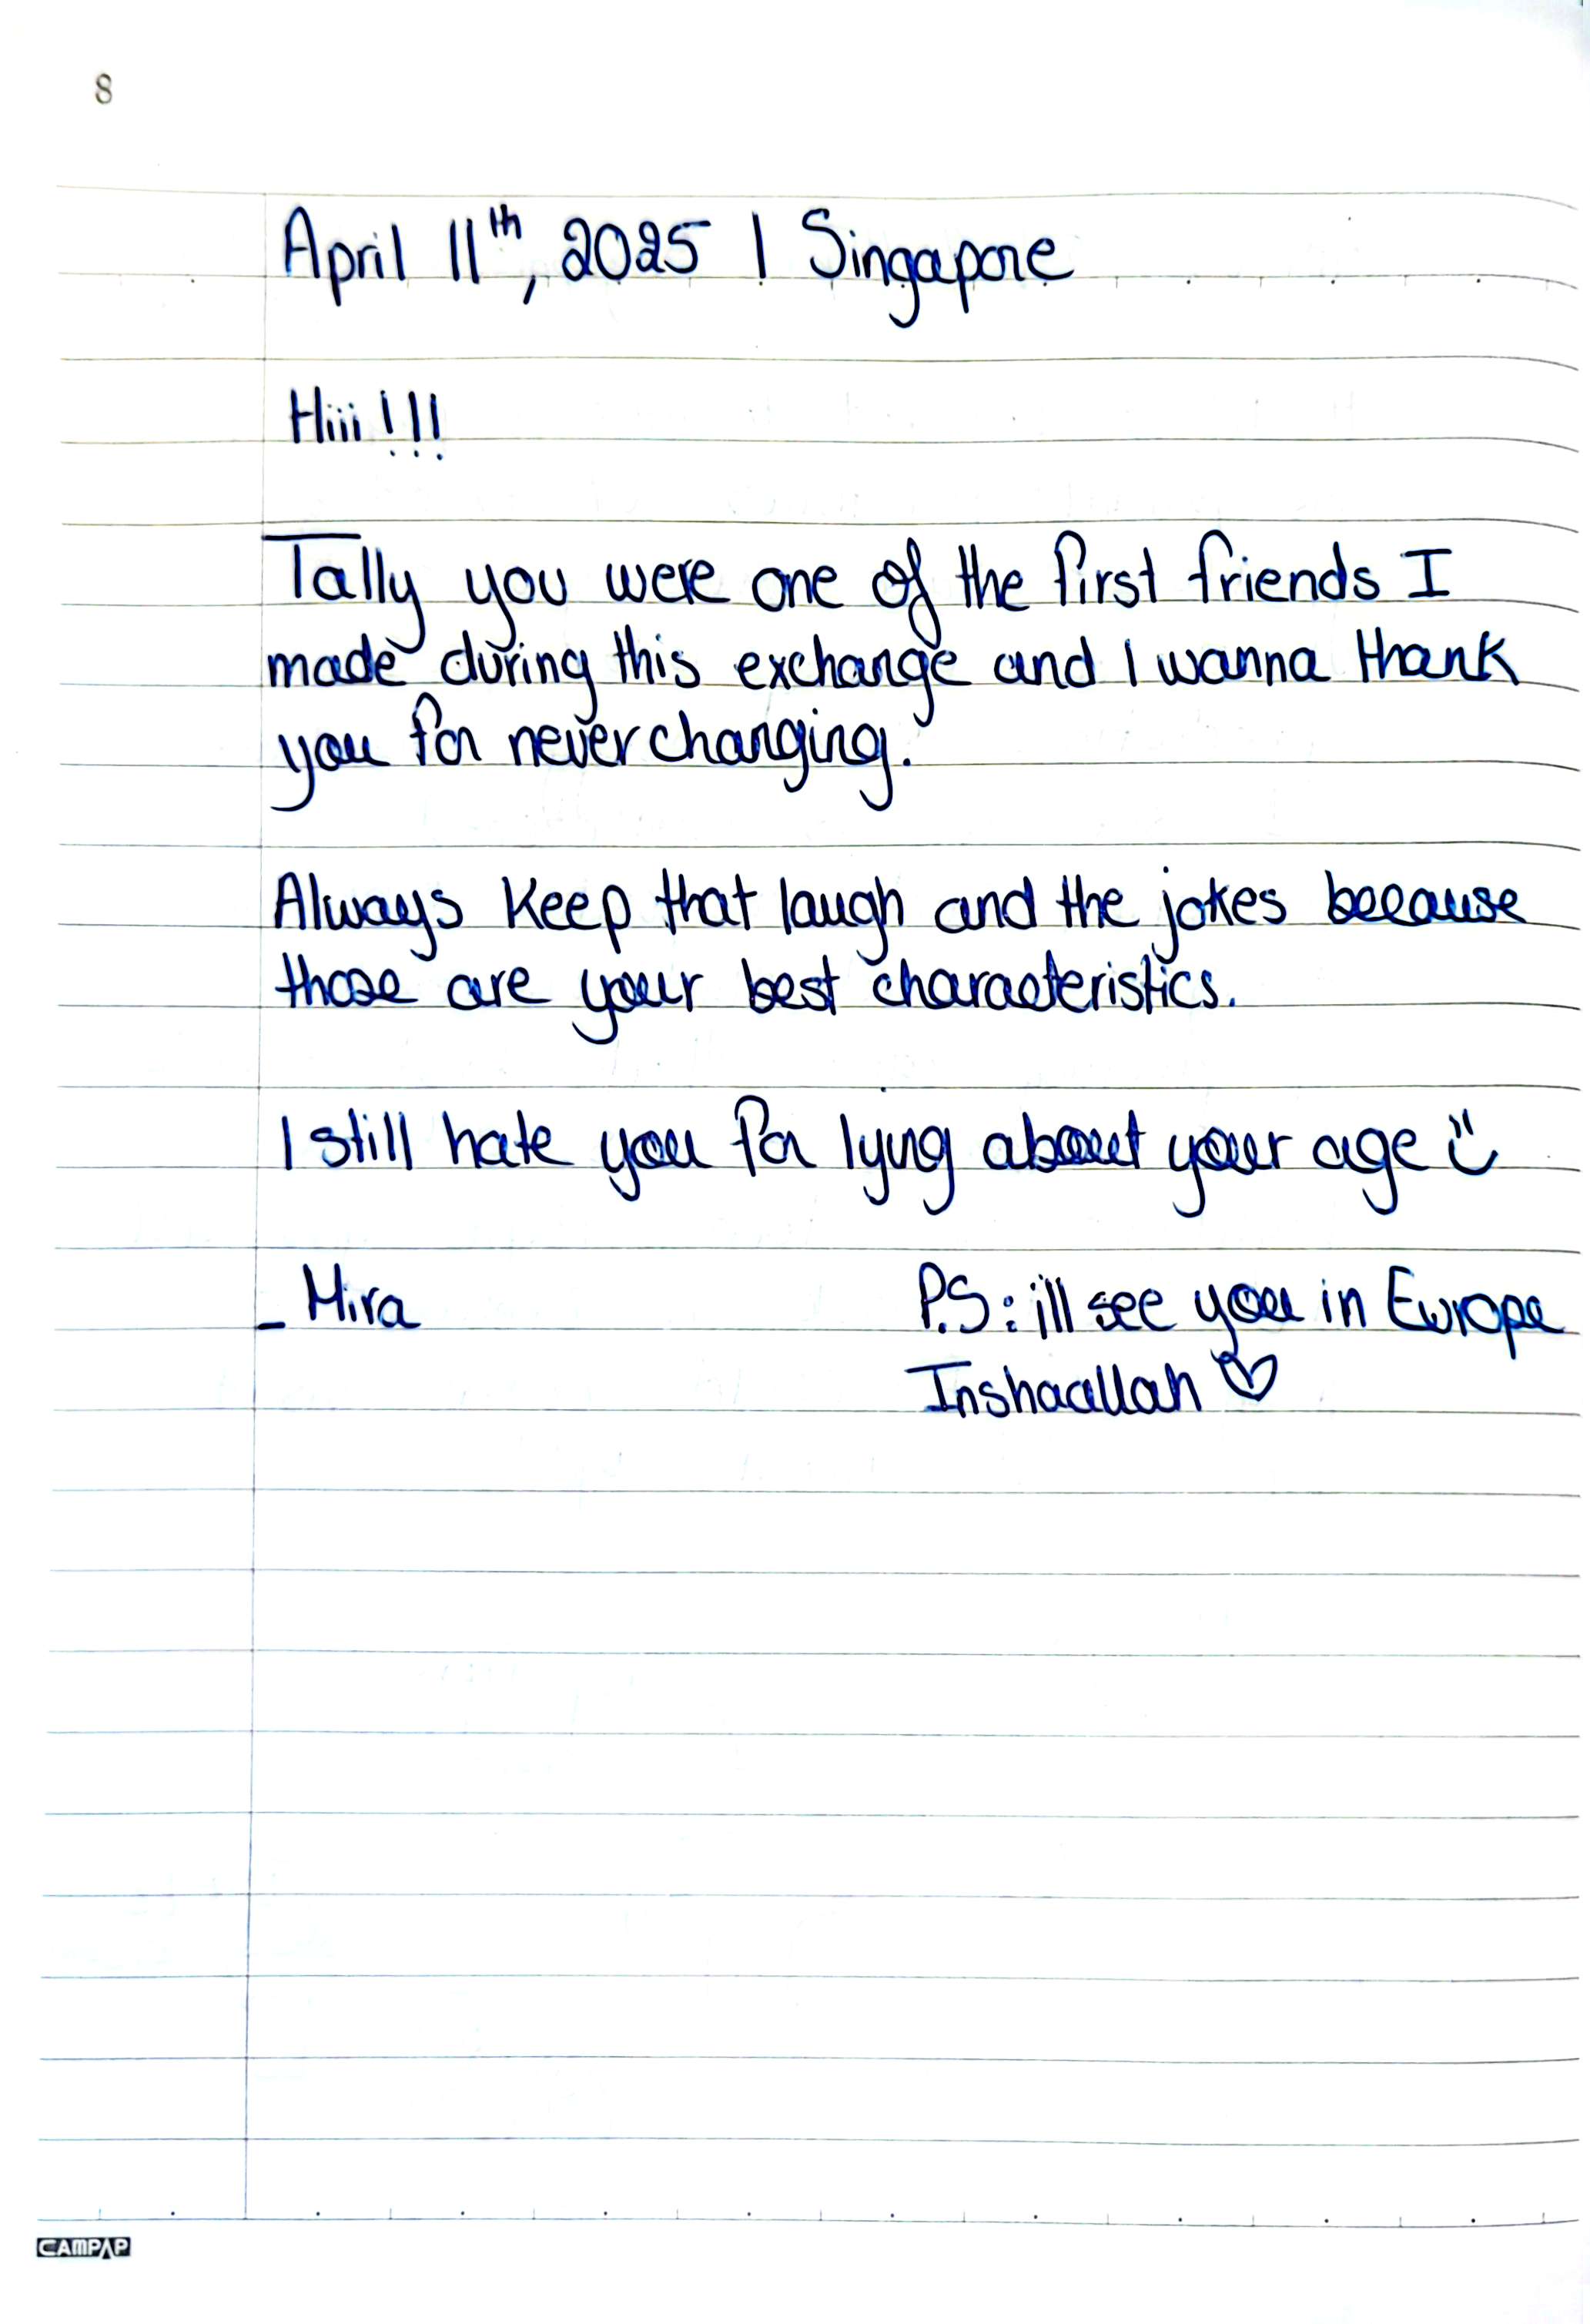 8
April 11th, 2025 | Singapore
Hiii!!!
Tally you were one of the first friends I
made during this exchange and I wanna thank
you for never changing.
Always keep that laugh and the jokes because
those are your best characteristics.
I still hate you for lying about your age :)
_ Mira
P.S: ill see you in Europe
Inshaallah ♡
CAMPAP